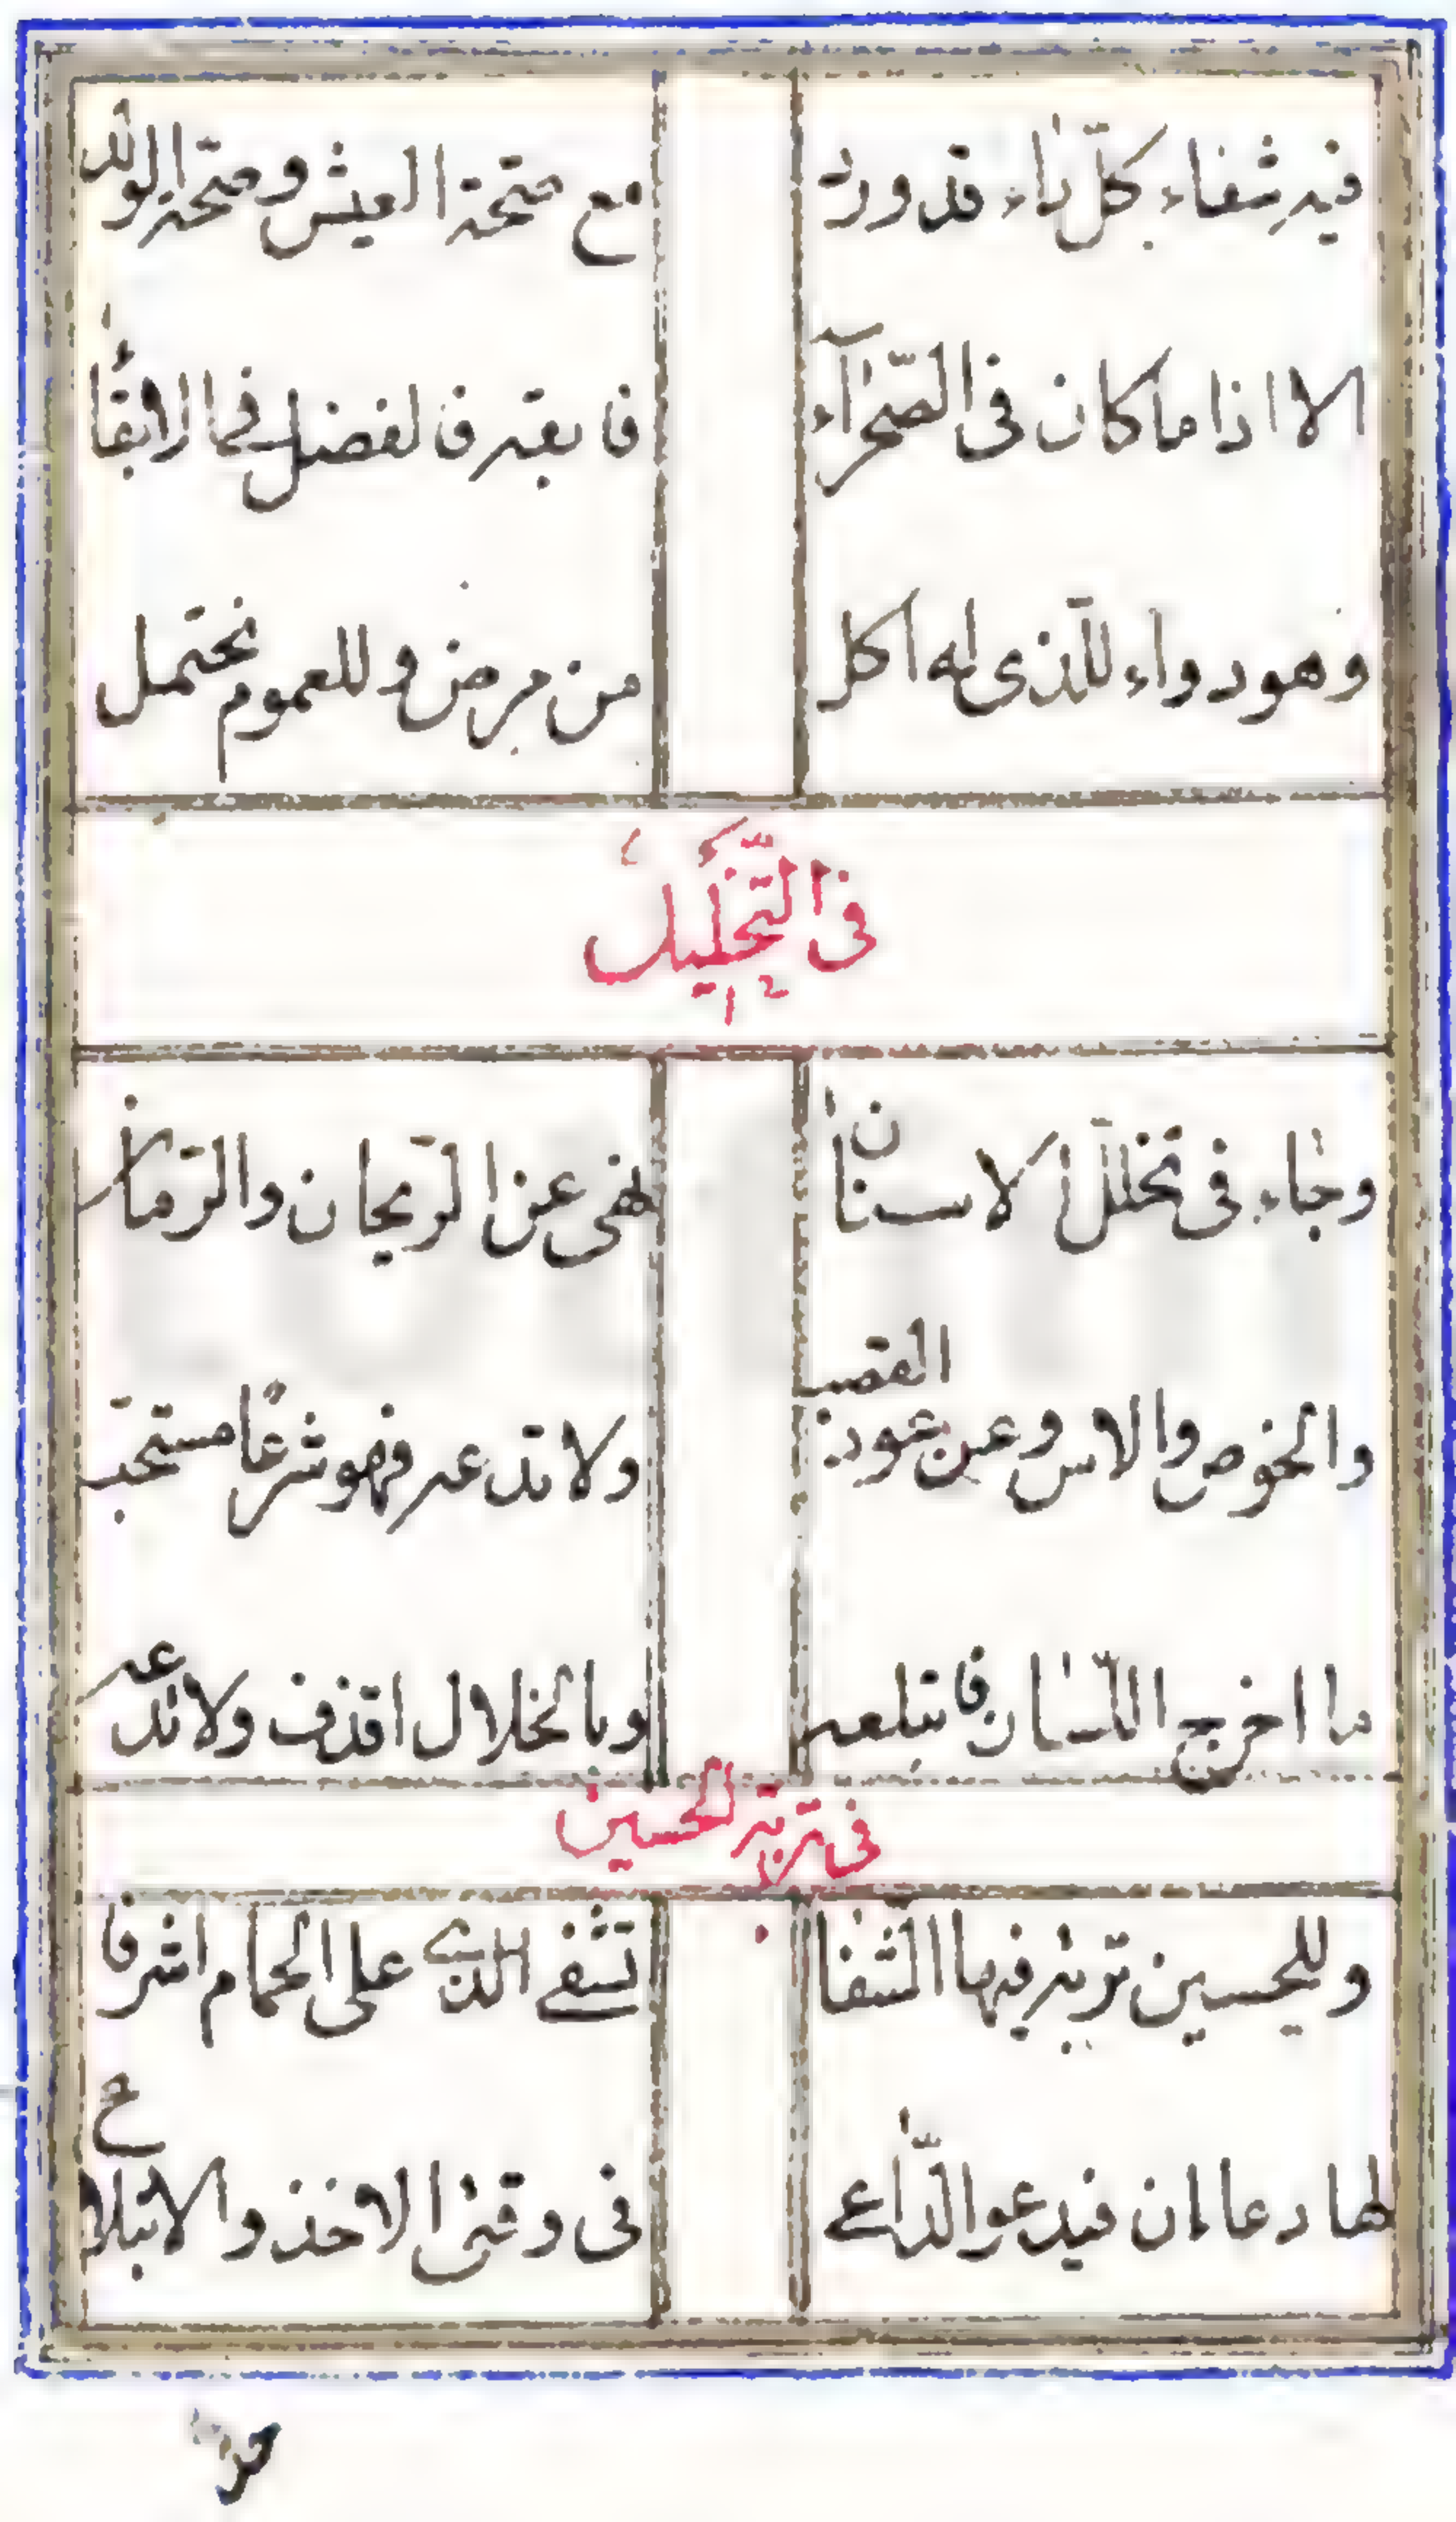 فيه شفاء كلّ داء قد ورد مع صحّة العيش وصحّة الولد
الا اذا ما كان فى الصّحرآء فا بقه فالفضل فى الابقاء
وهو دواء للّذى له اكل من مرض وللعموم يحتمل
فى التّخليل
وجاء فى تخلّل الاسنان نهى عن الرّيحان والرّمان
والخوص والاس وعن عود القصب ولا تدعه فهو شرعًا مستحبّ
ما اخرج اللّسان فابتلعه وبالخلال اقذف ولا تدعه
فى تربة الحسين
وللحسين تربة فيها الشّفا تشفى الذى على الحمام اشرفا
لها دعا ان فيدعو الدّاعى فى وقتى الاخذ والابتلاع